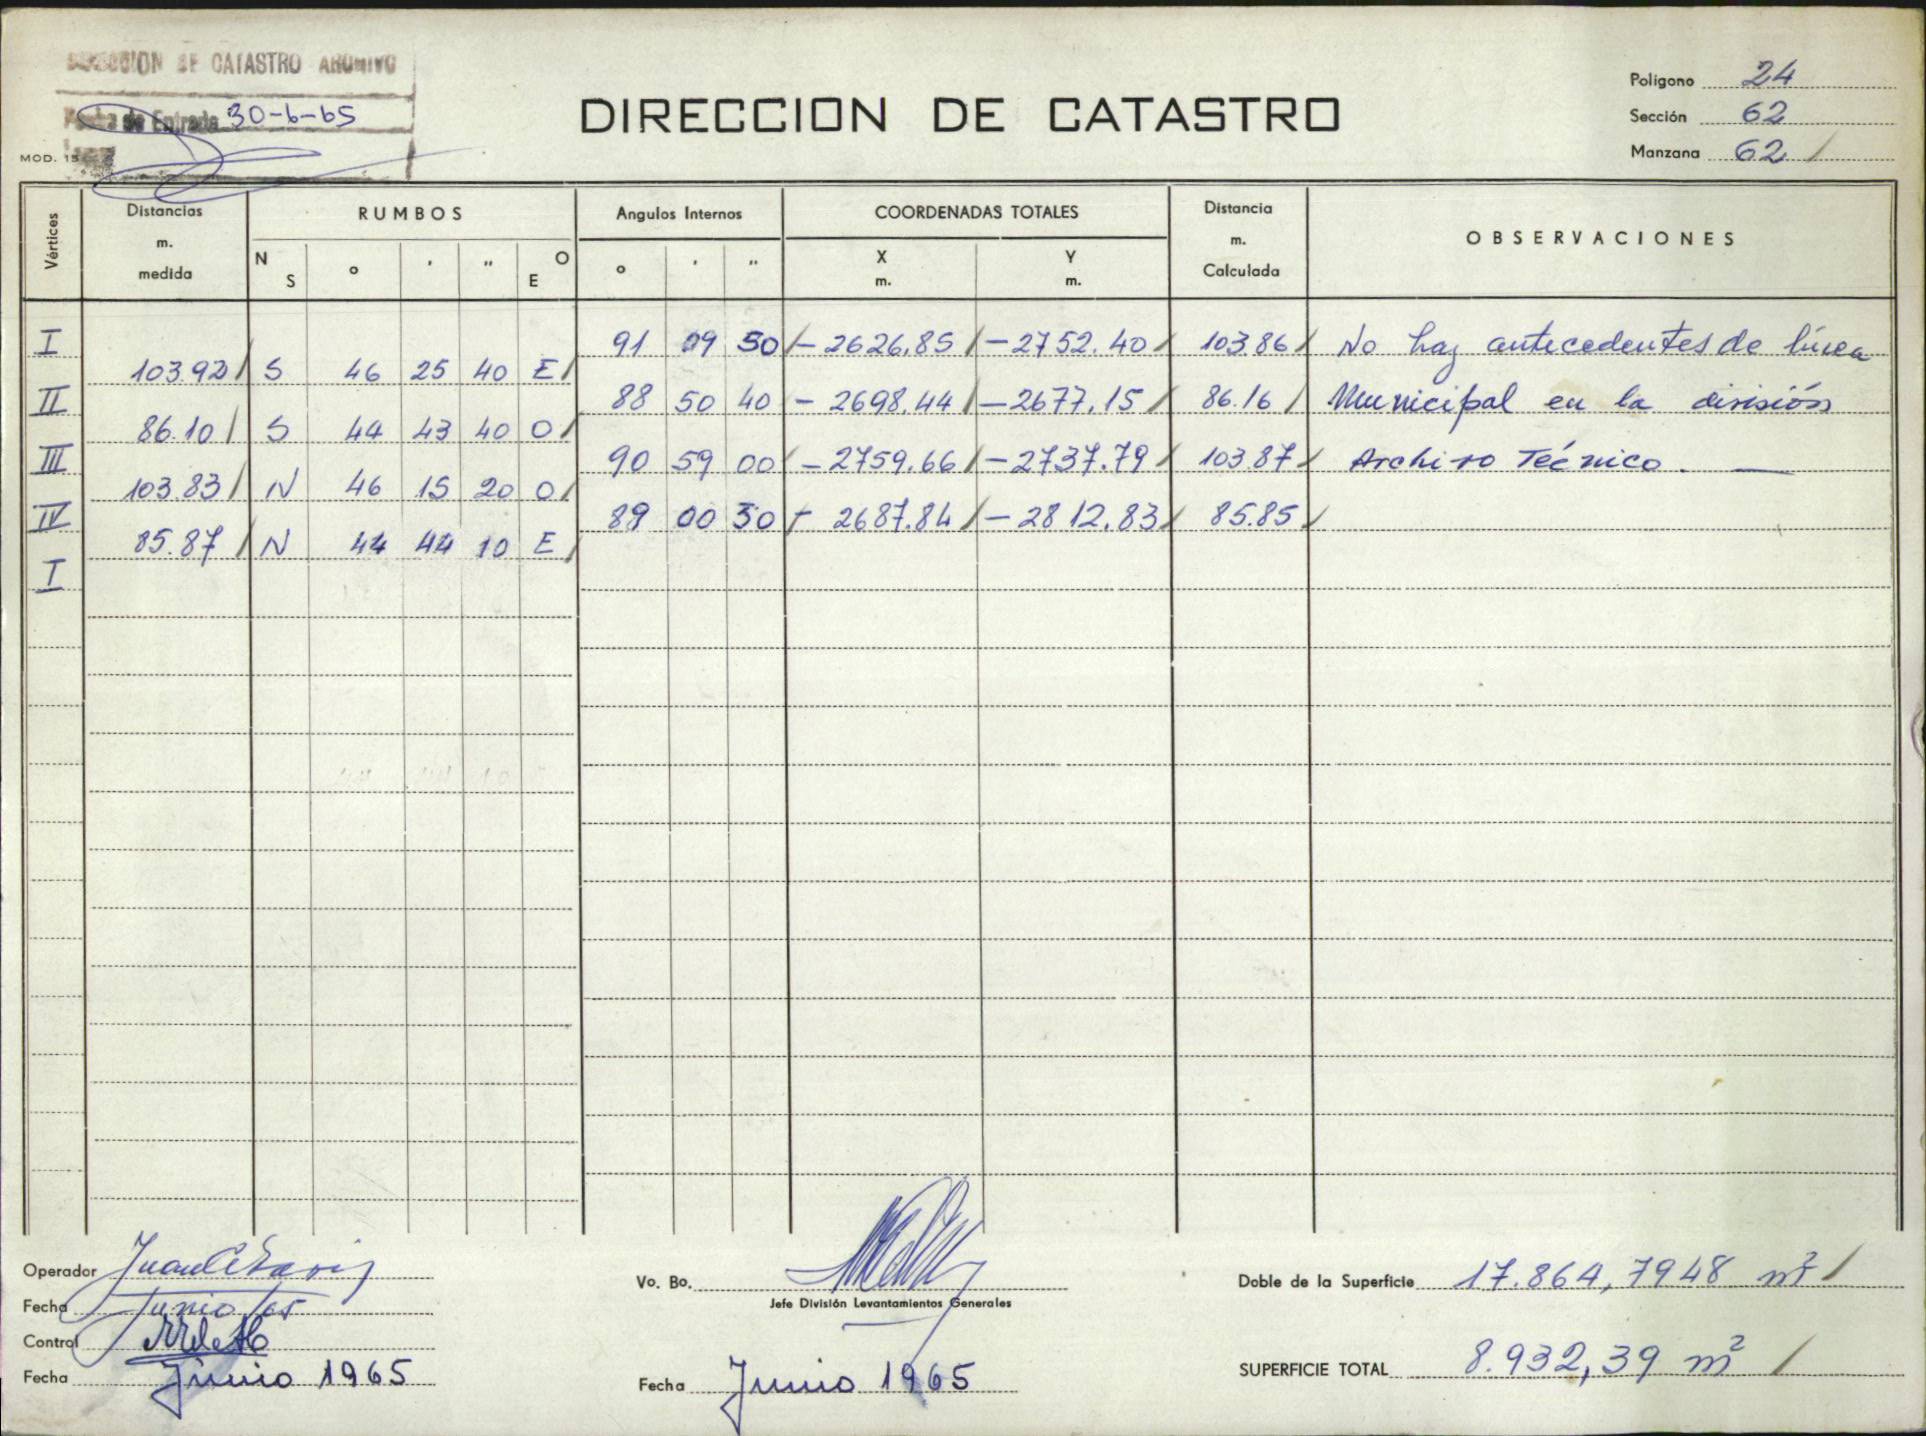 DIRECCION DE CATASTRO ARCHIVO
Fecha de Entrada 30-6-65
MOD. 15
DIRECCION DE CATASTRO
Polígono 24
Sección 62
Manzana 62 /
Vértices Distancias m. medida RUMBOS Angulos Internos COORDENADAS TOTALES Distancia m. Calculada OBSERVACIONES
N S ° ' " O E ° ' " X m. Y m.
I 91 09 50 / - 2626.85 / - 2752.40 / 103.86 / No hay antecedentes de línea
103.92 / S 46 25 40 E /
II 88 50 40 / - 2698.44 / - 2677.15 / 86.16 / Municipal en la división
86.10 / S 44 43 40 O /
III 90 59 00 / - 2759.66 / - 2737.79 / 103.87 / Archivo Técnico.
103.83 / N 46 15 20 O /
IV 89 00 30 / - 2687.84 / - 2812.83 / 85.85 /
85.87 / N 44 44 10 E /
I
Operador Juan C.
Fecha Junio /65
Control
Fecha Junio 1965
Vo. Bo.
Jefe División Levantamientos Generales
Fecha Junio 1965
Doble de la Superficie 17.864,7948 m² /
SUPERFICIE TOTAL 8.932,39 m² /